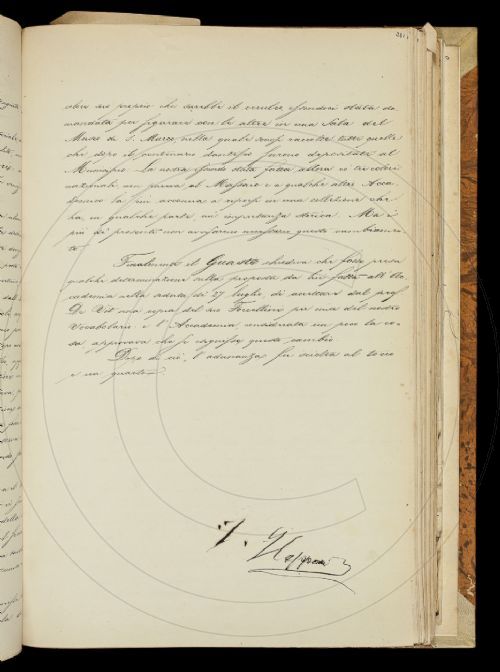 che sarebbe il
mandata per figurare con le altre in una Sala del
Museo di S. Marco, nella quale sono raccolte tutte quelle
che dopo il centenario dantesco furono depositate al
Municipio. La nostra essendo stata fatta allora
nazionale, al Massaro e a qualche altro Acca-
demico in una collezione che
ha, in qualche parte un' importanza storica. Ma i
più dei presenti non questo cambiamen-
to.
Finalmente il Guasti chiedeva che fosse presa
qualche determinazione sulla proposta da lui fatta all' Ac-
cademia nella seduta di 27 luglio, di accettare dal prof
De Vit una copia del suo Forcellini per una del nostro
Vocabolario: e l' Accademia considerata un poco la co-
sa approvava che si eseguisse questo cambio.
Dopo di ciò, l' adunanza fu sciolta al tocco
e un quarto.